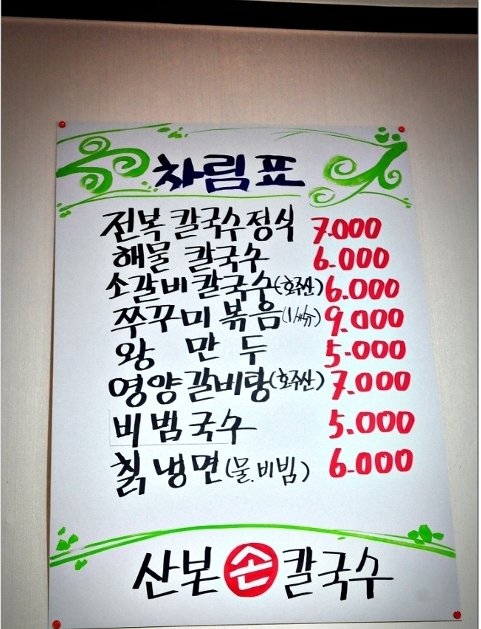 차림표
전복 칼국수정식 7.000
해물 칼국수 6.000
소갈비 칼국수(호주산) 6.000
쭈꾸미 볶음(1人分) 9.000
왕 만 두 5.000
영양 갈비탕(호주산) 7.000
비빔국수 5.000
칡 냉면(물.비빔) 6.000
산본 손 칼국수